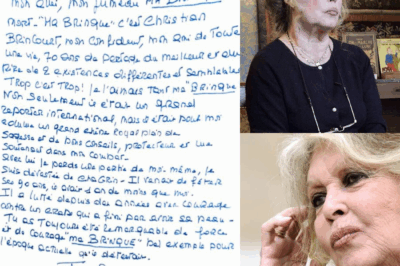 non Oui, mon jumeau MA BRINQUE
Mort - "MA BRINQUE" c'est Christian
Brincourt, mon confident, mon ami de toute
une vie, 70 ans de période du meilleur et du
Pire de 2 existences différentes et semblables
Trop c'est Trop! Je l'aimais tant ma "BRINQUE"
Non seulement il était un grand
reporter international, mais il était pour moi
comme un grand chêne Royal plein de
Sagesse et de bons conseils, protecteur et
Soutenait dans mon combat.
Avec lui je perds une partie de moi même, je
Suis dévastée de CHAGRIN - Il venait de fêter
Ses 90 ans, il avait 1 an de moins que moi.
Il a lutté depuis des années avec courage
contre un crabe qui a fini par avoir sa peau -
Tu as Toujours été remarquable de force
et de courage "MA BRINQUE" bel exemple pour
l'époque actuelle qui